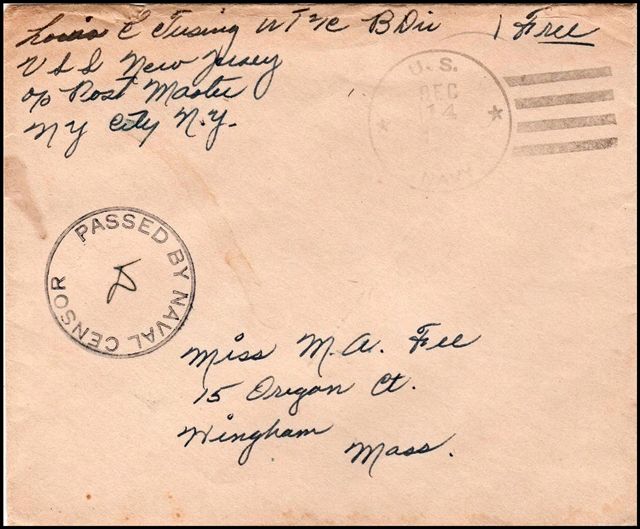 Louis E Tusing WT2/c B Div
Free
U S S New Jersey
c/o Post Master
N Y City N.Y.
U.S.
DEC
14
NAVY
PASSED BY NAVAL CENSOR
Miss M. A. Fee
15 Oregon Ct.
Hingham
Mass.